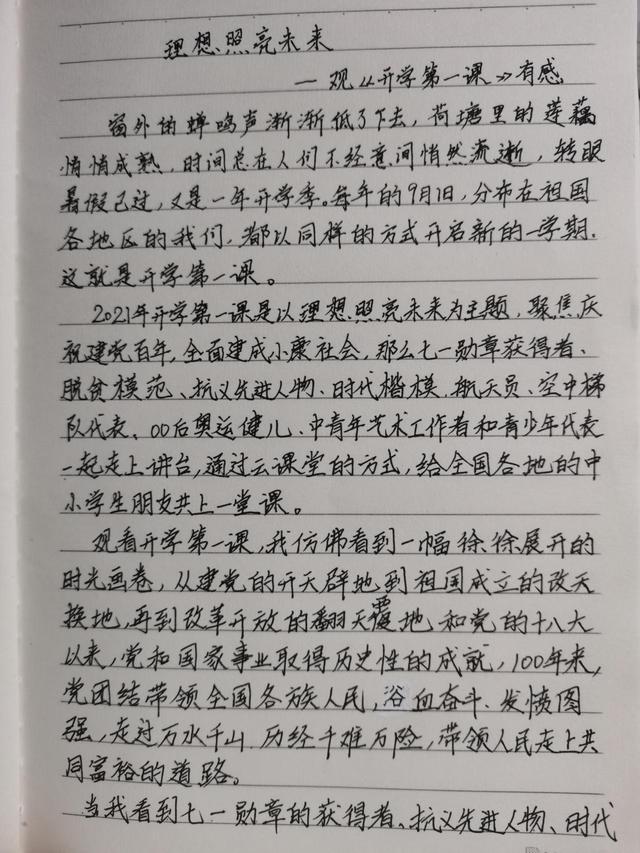 理想照亮未来
—观《开学第一课》有感
窗外的蝉鸣声渐渐低了下去，荷塘里的莲藕
悄悄成熟，时间总在人们不经意间悄然流逝，转眼
暑假已过，又是一年开学季。每年的9月1日，分布在祖国
各地区的我们，都以同样的方式开启新的一学期，
这就是开学第一课。
2021年开学第一课是以理想照亮未来为主题，聚焦庆
祝建党百年，全面建成小康社会，那么七一勋章获得者、
脱贫模范、抗义先进人物、时代楷模、航天员、空中梯
队代表、00后奥运健儿、中青年艺术工作者和青少年代表
一起走上讲台，通过云课堂的方式，给全国各地的中
小学生朋友共上一堂课。
观看开学第一课，我仿佛看到一幅徐徐展开的
时光画卷，从建党的开天辟地到祖国成立的改天
换地，再到改革开放的翻天覆地和党的十八大
以来，党和国家事业取得历史性的成就，100年来，
党团结带领全国各族人民，浴血奋斗、发愤图
强，走过万水千山，历经千难万险，带领人民走上共
同富裕的道路。
当我看到七一勋章的获得者、抗义先进人物、时代